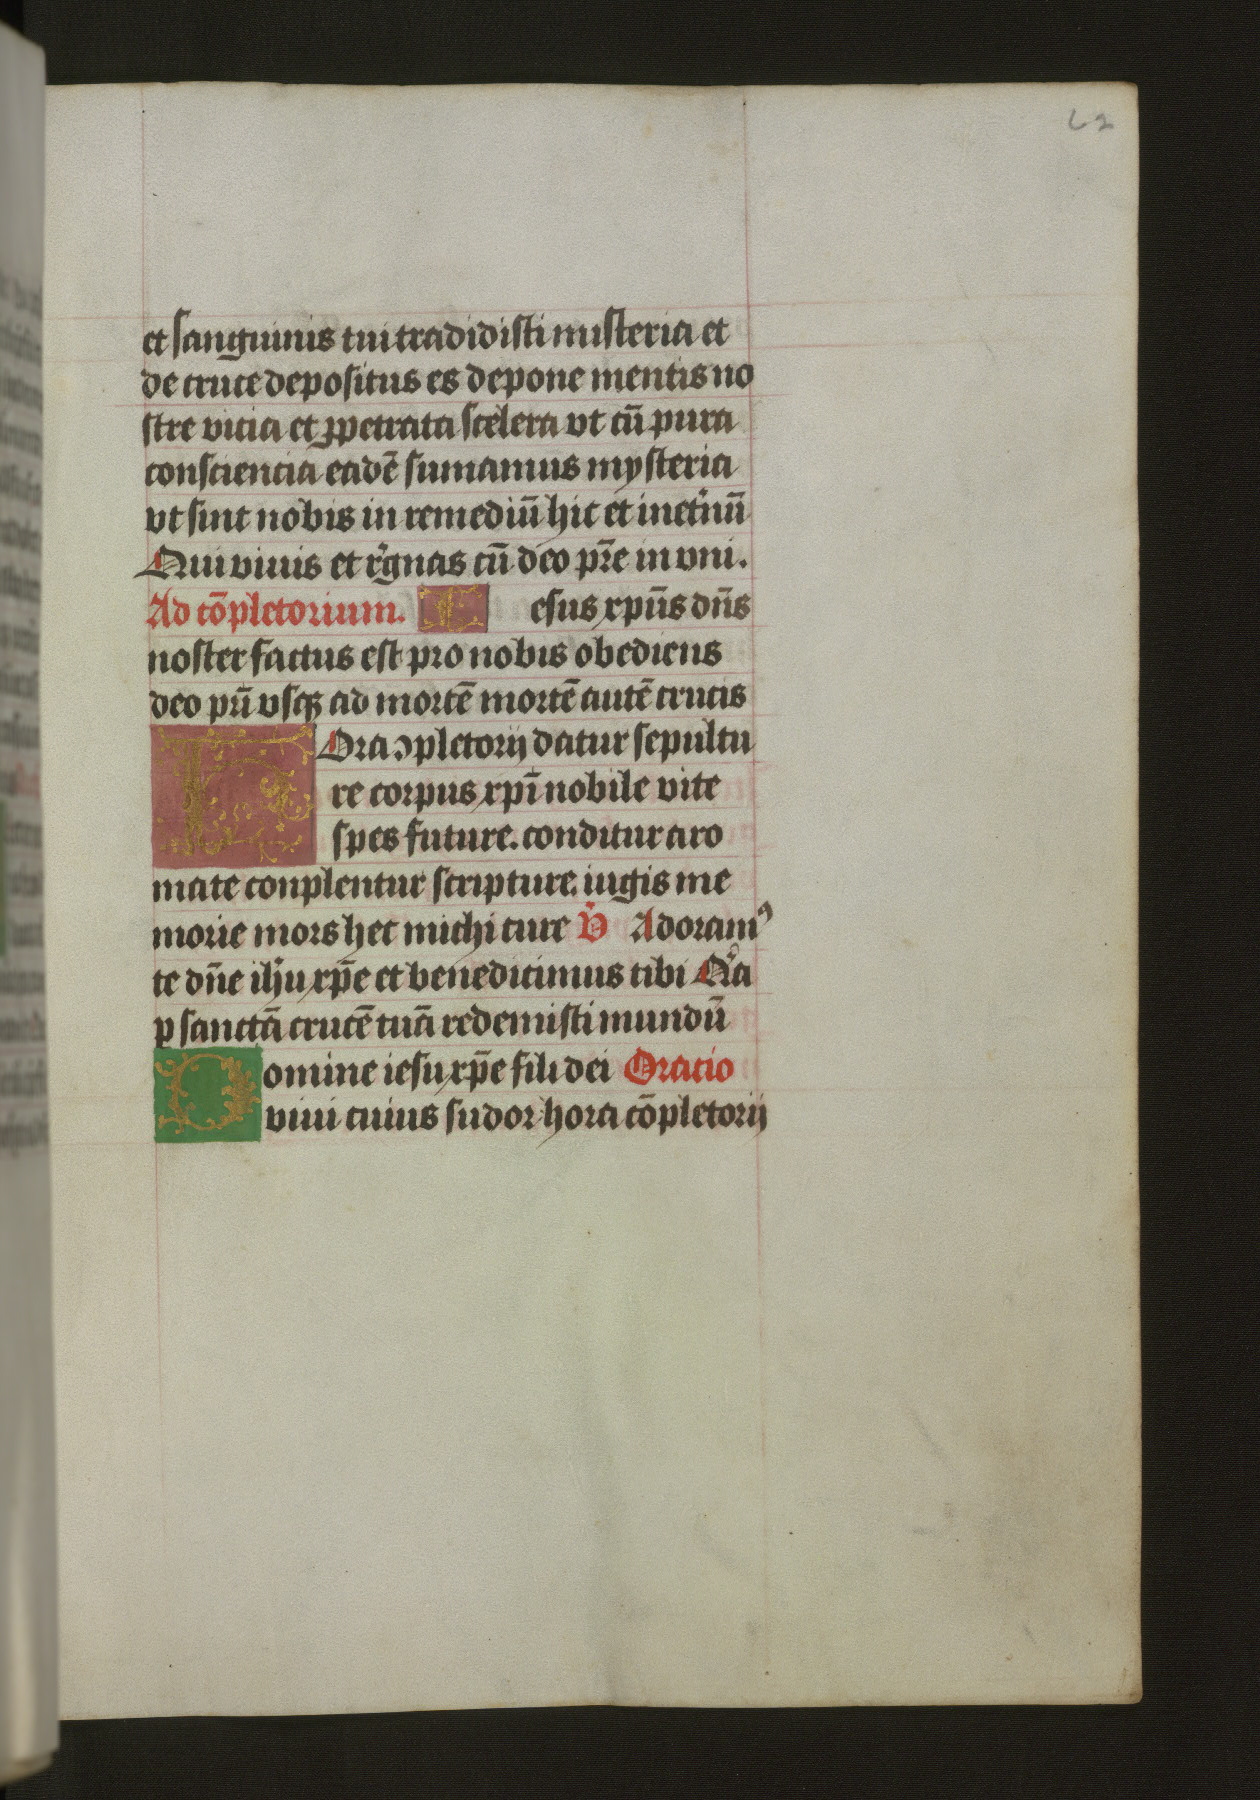 62
et sanguinis tui tradidisti misteria et
de cruce depositus es depone mentis no
stre vicia et ꝓpetrata scelera vt cū pura
consciencia eadē sumamus mysteria
vt sint nobis in remediū hic et inet̓nū
Qui viuis et r̓gnas cū deo pr̄e in vni.
Ad cōpletorium. I esus xpūs dn̄s
noster factus est pro nobis obediens
deo pr̄i vsqꝫ ad mortē mortē autē crucis
HOra ꝯpletorij datur sepultu
re corpus xpī nobile vite
spes future. conditur aro
mate conplentur scripture. iugis me
morie mors hec michi cure V̓ Adoramꝰ
te dn̄e ihū xpē et benedicimus tibi Qͥa
p sanctā crucē tuā redemisti mundū
Domine iesu xpē fili dei Oratio
viui cuius sudor hora cōpletorij